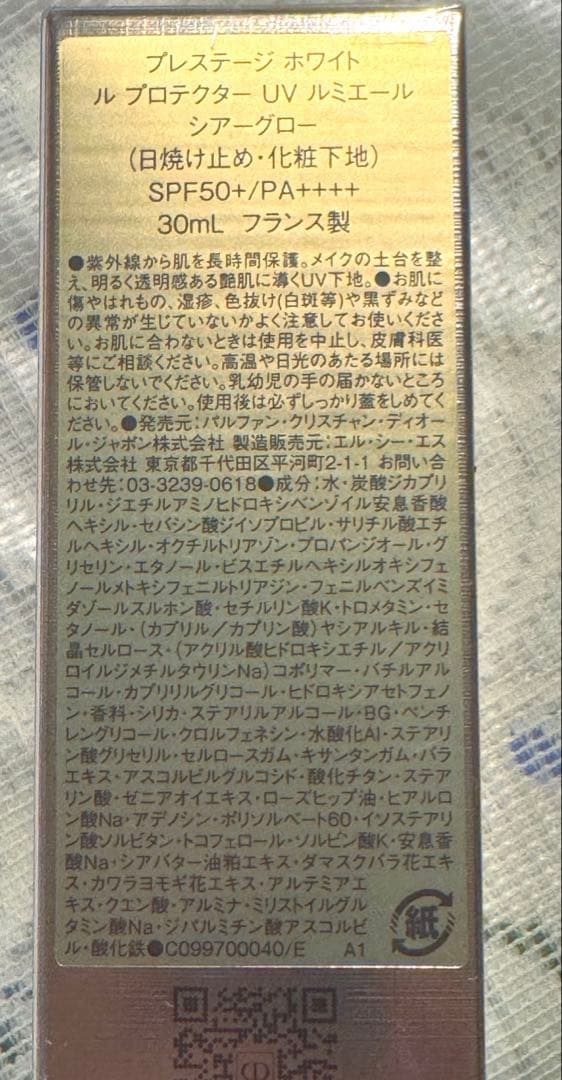 プレステージ ホワイト
ル プロテクター UV ルミエール
シアーグロー
(日焼け止め・化粧下地)
SPF50+/PA++++
30mL フランス製
●紫外線から肌を長時間保護。メイクの土台を整
え、明るく透明感ある艶肌に導くUV下地。●お肌に
傷やはれもの、湿疹、色抜け(白斑等)や黒ずみなど
の異常が生じていないかよく注意してお使いくださ
い。お肌に合わないときは使用を中止し、皮膚科医
等にご相談ください。高温や日光のあたる場所には
保管しないでください。乳幼児の手の届かないところ
においてください。使用後は必ずしっかり蓋をしめてく
ださい。●発売元:パルファン・クリスチャン・ディオー
ル・ジャポン株式会社 製造販売元:エル・シー・エス
株式会社 東京都千代田区平河町2-1-1 お問い合
わせ先:03-3239-0618●成分:水・炭酸ジカプリ
リル・ジエチルアミノヒドロキシベンゾイル安息香酸
ヘキシル・セバシン酸ジイソプロピル・サリチル酸エチ
ルヘキシル・オクチルトリアゾン・プロパンジオール・グ
リセリン・エタノール・ビスエチルヘキシルオキシフェ
ノールメトキシフェニルトリアジン・フェニルベンズイミ
ダゾールスルホン酸・セチルリン酸K・トロメタミン・セ
タノール・(カプリル/カプリン酸)ヤシアルキル・結
晶セルロース・(アクリル酸ヒドロキシエチル/アクリ
ロイルジメチルタウリンNa)コポリマー・バチルアル
コール・カプリリルグリコール・ヒドロキシアセトフェノ
ン・香料・シリカ・ステアリルアルコール・BG・ペンチ
レングリコール・クロルフェネシン・水酸化Al・ステアリ
ン酸グリセリル・セルロースガム・キサンタンガム・バラ
エキス・アスコルビルグルコシド・酸化チタン・ステア
リン酸・ゼニアオイエキス・ローズヒップ油・ヒアルロ
ン酸Na・アデノシン・ポリソルベート60・イソステアリ
ン酸ソルビタン・トコフェロール・ソルビン酸K・安息香
酸Na・シアバター油粕エキス・ダマスクバラ花エキ
ス・カワラヨモギ花エキス・アルテミアエ
キス・クエン酸・アルミナ・ミリストイルグル
タミン酸Na・ジパルミチン酸アスコルビ
ル・酸化鉄●C099700040/E A1
紙
CD